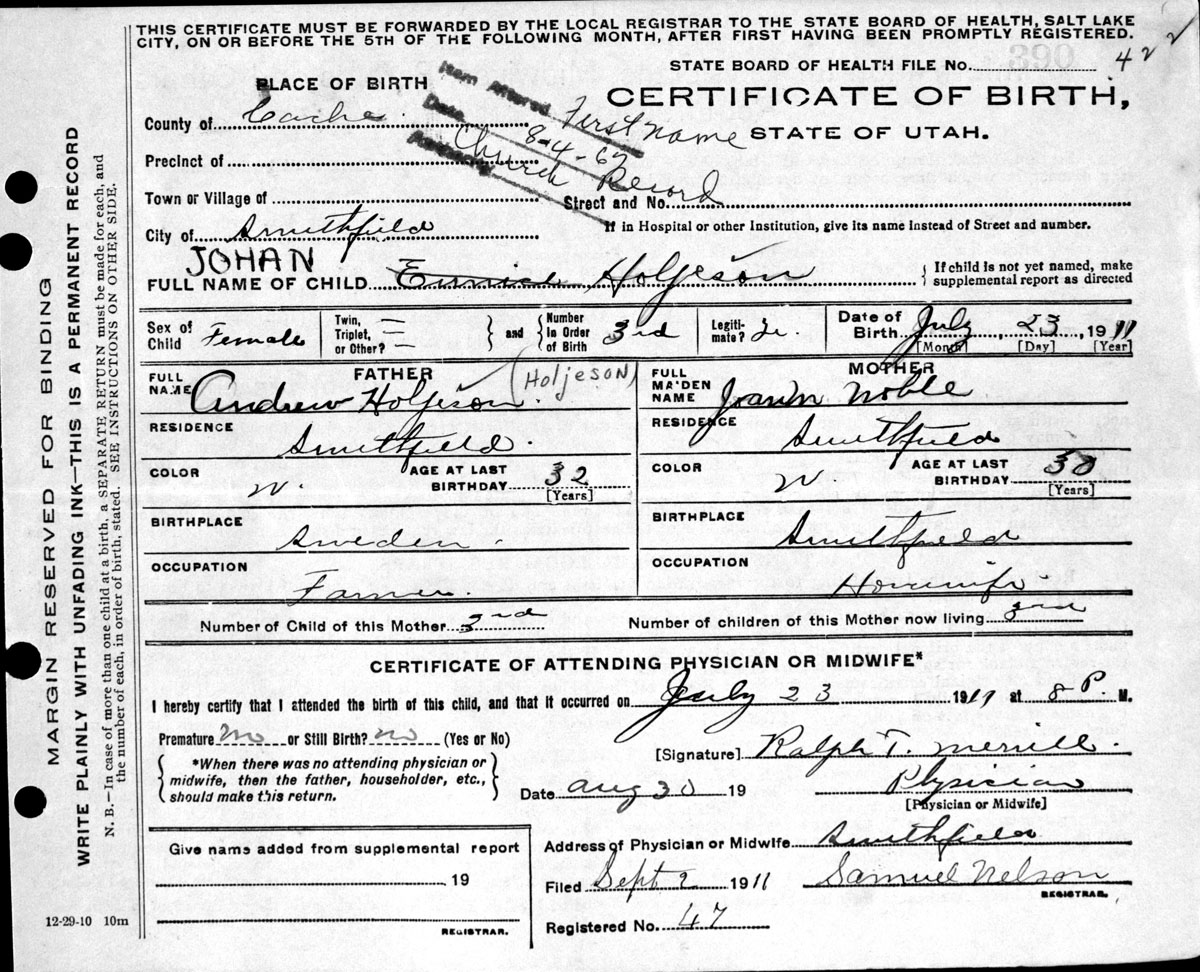 THIS CERTIFICATE MUST BE FORWARDED BY THE LOCAL REGISTRAR TO THE STATE BOARD OF HEALTH, SALT LAKE
CITY, ON OR BEFORE THE 5TH OF THE FOLLOWING MONTH, AFTER FIRST HAVING BEEN PROMPTLY REGISTERED.
STATE BOARD OF HEALTH FILE No. 422
PLACE OF BIRTH
CERTIFICATE OF BIRTH,
STATE OF UTAH.
Item Altered First name
Date 8-4-67
Church Record
County of Cache
Precinct of
Town or Village of
Street and No.
City of Smithfield
If in Hospital or other Institution, give its name instead of Street and number.
JOHAN
FULL NAME OF CHILD Holjeson
If child is not yet named, make
supplemental report as directed
Sex of Child Female
Twin, Triplet, or Other?
and Number in Order of Birth 3rd
Legitimate?
Date of Birth July 23, 1911
[Month] [Day] [Year]
FATHER
FULL NAME Andrew Holjeson (HolJeSON)
RESIDENCE Smithfield
COLOR W.
AGE AT LAST BIRTHDAY 32
[Years]
BIRTHPLACE
Sweden
OCCUPATION
Farmer.
MOTHER
FULL MAIDEN NAME Noble
RESIDENCE Smithfield
COLOR W
AGE AT LAST BIRTHDAY 30
[Years]
BIRTHPLACE
Smithfield
OCCUPATION
Housewife
Number of Child of this Mother 3rd
Number of children of this Mother now living 3rd
CERTIFICATE OF ATTENDING PHYSICIAN OR MIDWIFE*
I hereby certify that I attended the birth of this child, and that it occurred on July 23 1911 at 8 P. M.
Premature no or Still Birth? no (Yes or No)
*When there was no attending physician or
midwife, then the father, householder, etc.,
should make this return.
[Signature] Ralph T. Merrill.
Physician
[Physician or Midwife]
Date Aug 30 19
Give name added from supplemental report
19
REGISTRAR.
Address of Physician or Midwife Smithfield
Filed Sept 2 1911 Samuel Nelson
REGISTRAR.
Registered No. 47
12-29-10 10m
MARGIN RESERVED FOR BINDING
WRITE PLAINLY WITH UNFADING INK—THIS IS A PERMANENT RECORD
N. B.—In case of more than one child at a birth, a SEPARATE RETURN must be made for each, and
the number of each, in order of birth, stated. SEE INSTRUCTIONS ON OTHER SIDE.